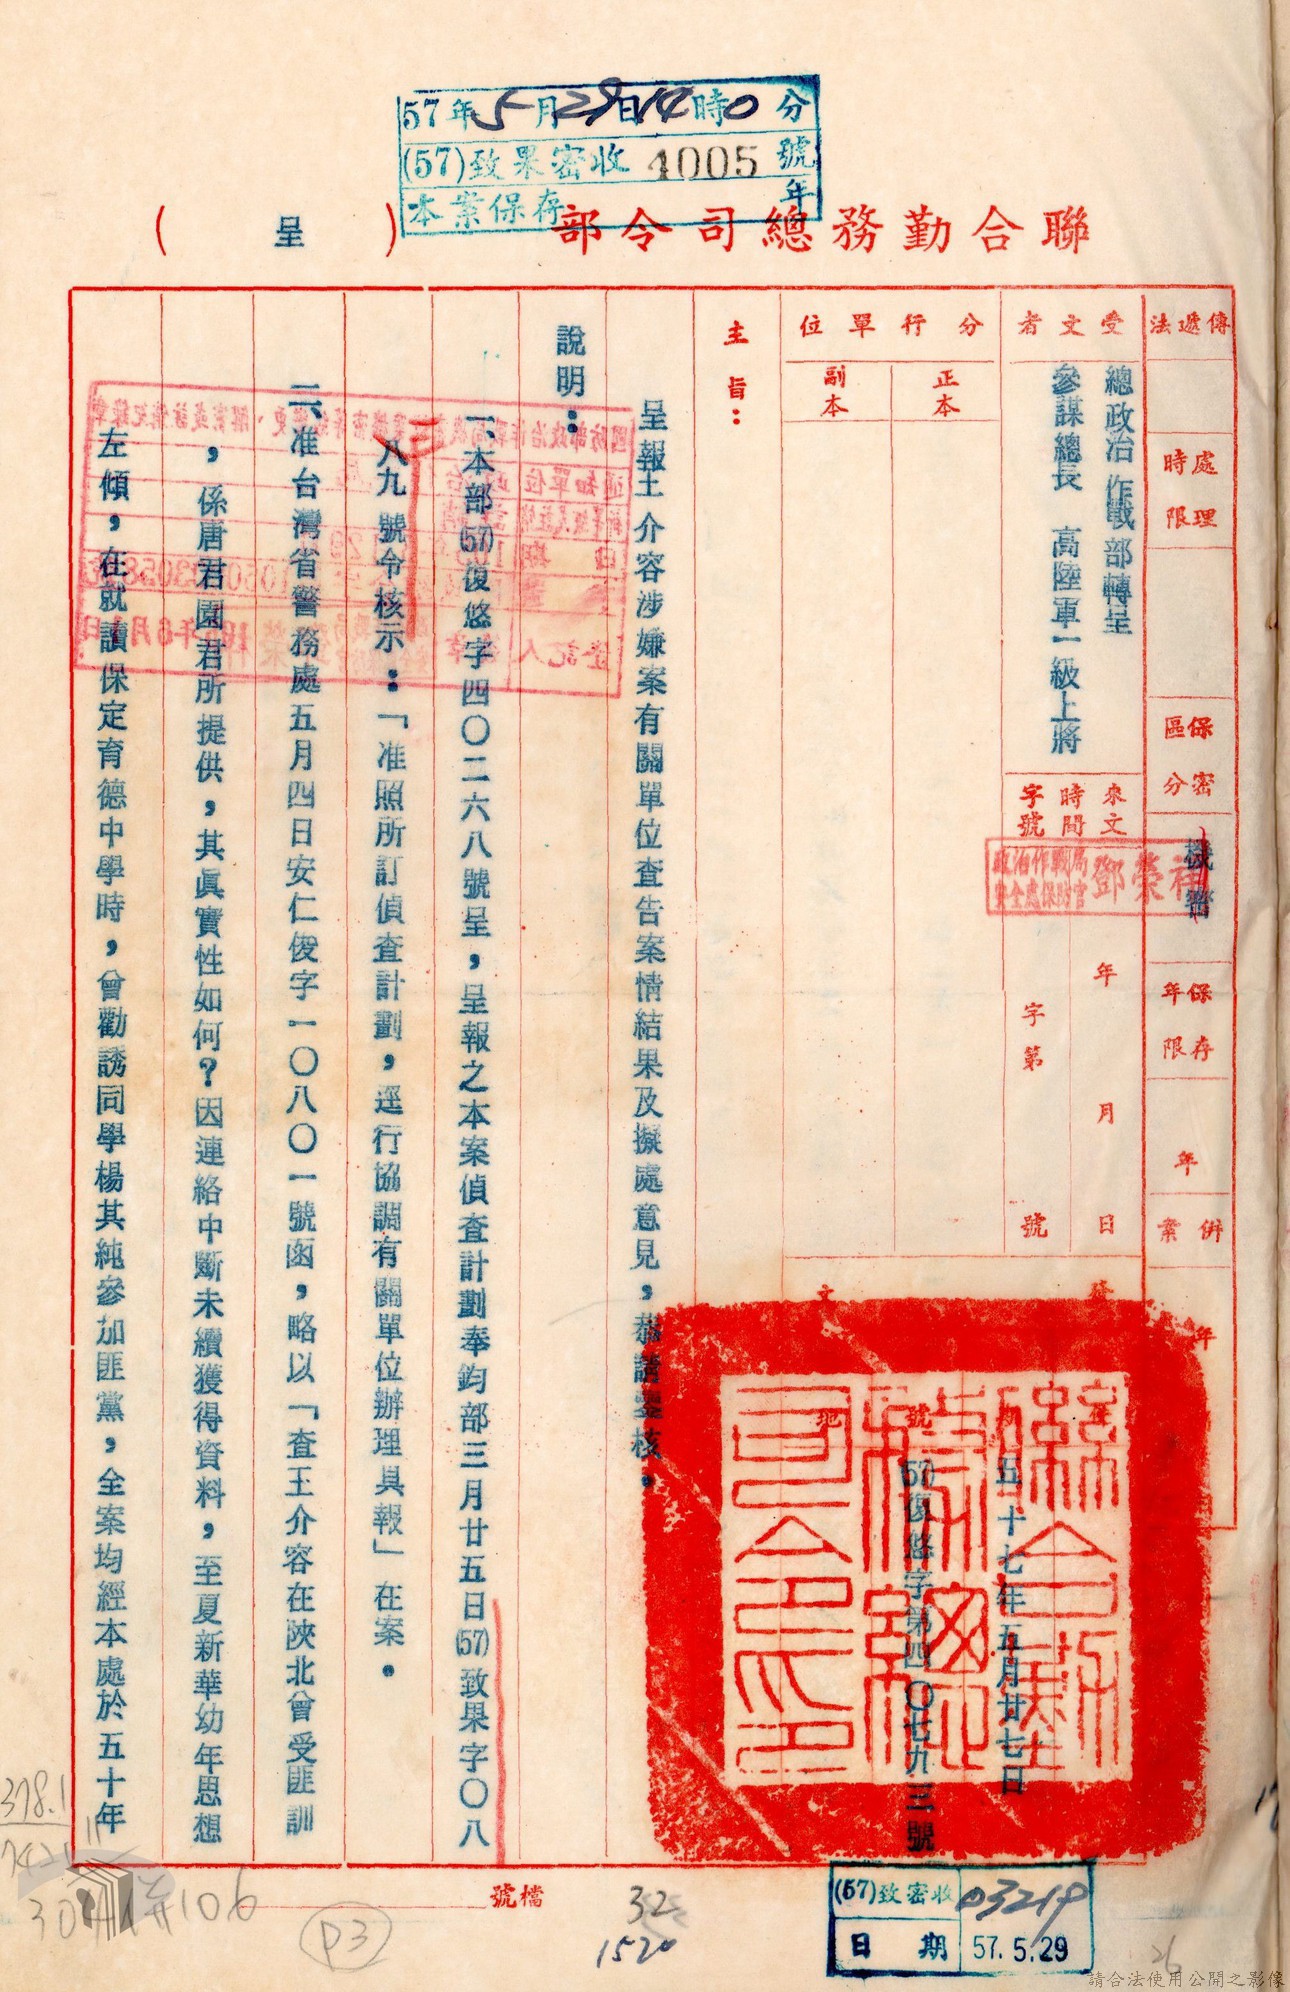 57年5月29日14時0分
(57)致果密收4005號
本案保存 年
聯合勤務總司令部
(呈)
傳遞法
處理時限
保密區分
機密
保存年限
年
併案
受文者
總政治作戰部轉呈
參謀總長 高陸軍一級上將
來文
時間
字號
年 月 日
字第 號
政治作戰局
安全處保防官
鄧榮祥
分行單位
正本
副本
發文
五十七年五月廿七日
(57)復悠字第四〇七九三號
主旨:
呈報王介容涉嫌案有關單位查告案情結果及擬處意見,恭請鑒核。
說明:
一本部(57)復悠字四〇二六八號呈,呈報之本案偵查計劃奉鈞部三月廿五日(57)致果字〇八
八九號令核示:「准照所訂偵查計劃,逕行協調有關單位辦理具報」在案。
二、准台灣省警務處五月四日安仁俊字一〇八〇一號函,略以「查王介容在陝北曾受匪訓
,係唐君園君所提供,其眞實性如何?因連絡中斷未續獲得資料,至夏新華幼年思想
左傾,在就讀保定育德中學時,曾勸誘同學楊其純參加匪黨,全案均經本處於五十年
檔號
378.1
7421
P3
32
1520
(57)致密收 03219
日期 57.5.29
26
請合法使用公開之影像